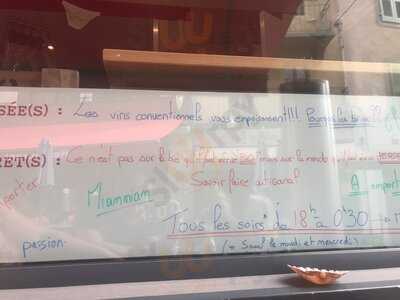 SÉE(S) : Les vins conventionnels vous empoisonnent!!! Pourquoi les boire ??
RET(S) : Ce n'est pas sur le bio qu'il faut écrire mais sur le monde
Savoir faire artisanal
porter
Miammiam
A emporter
Tous les soirs* de 18h à 0h30
passion.
(* Sauf le mardi et mercredi)